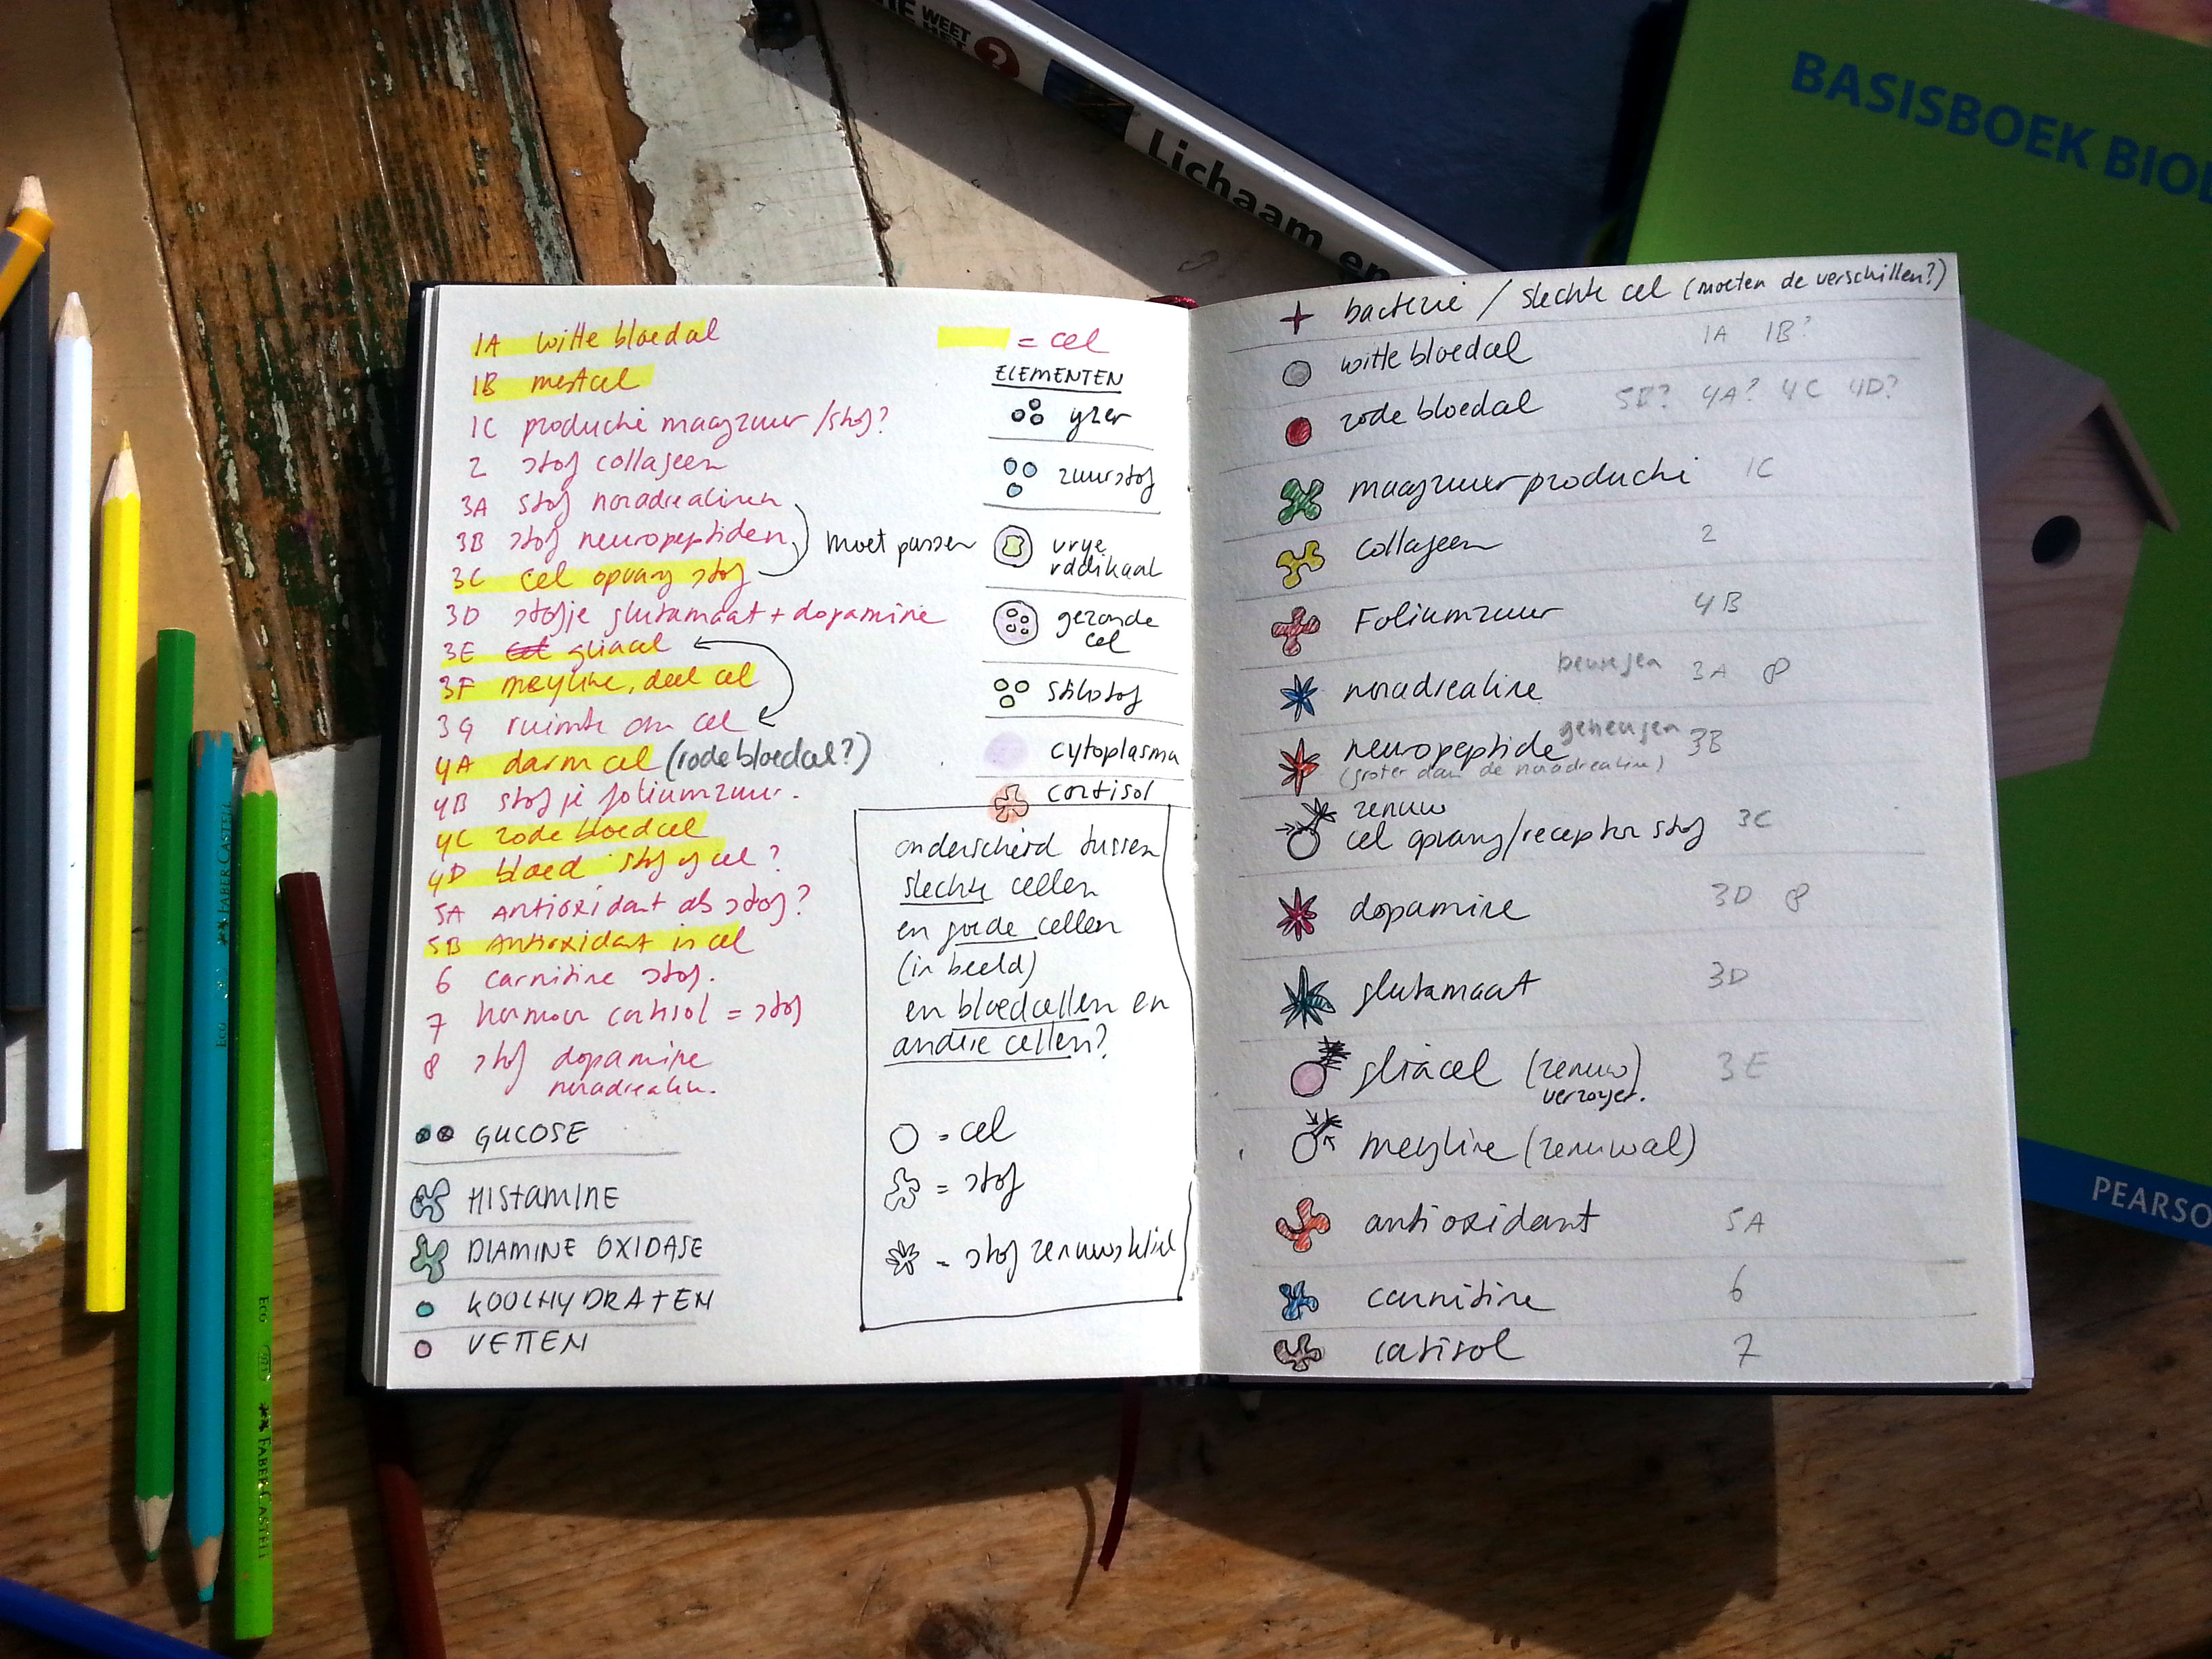 WEET
HET
?
Lichaam en
BASISBOEK BIOL
PEARSO
FABER-CASTELL
ECO
ECO
FABER-CASTELL
1A witte bloedcel
1B mestcel
1C productie maagzuur/stof?
2 stof collageen
3A stof noradrealinen
3B stof neuropeptiden
3C cel opvang stof
moet passen
3D stofje glutamaat + dopamine
3E cel gliacel
3F meyline, deel cel
3G ruimte om cel
4A darm cel (rode bloedcel?)
4B stofje foliumzuur.
4C rode bloedcel
4D bloed stof of cel?
5A Antioxidant als stof?
5B Antioxidant in cel
6 carnitine stof.
7 hormoon cortisol = stof
8 stof dopamine
noradrealin.
GUCOSE
HISTAMINE
DIAMINE OXIDASE
KOOLHYDRATEN
VETTEN
= cel
ELEMENTEN
yzer
zuurstof
vrye
raddikaal
gezonde
cel
stikstof
cytoplasma
cortisol
onderscheid tussen
slechte cellen
en goede cellen
(in beeld)
en bloedcellen en
andere cellen?
= cel
= stof
= stof zenuwstelsel
bacterie / slechte cel (moeten de verschillen?)
witte bloedcel 1A 1B?
rode bloedcel 5B? 4A? 4C 4D?
maagzuurproductie 1C
collageen 2
Foliumzuur 4B
noradrealine bewegen 3A 8
neuropeptide geheugen 3B
(groter dan de noradrealine)
zenuw
cel opvang/receptor stof 3C
dopamine 3D 8
glutamaat 3D
gliacel (zenuw) 3E
verzorger.
meyline (zenuwcel)
antioxidant 5A
carnitine 6
cortisol 7